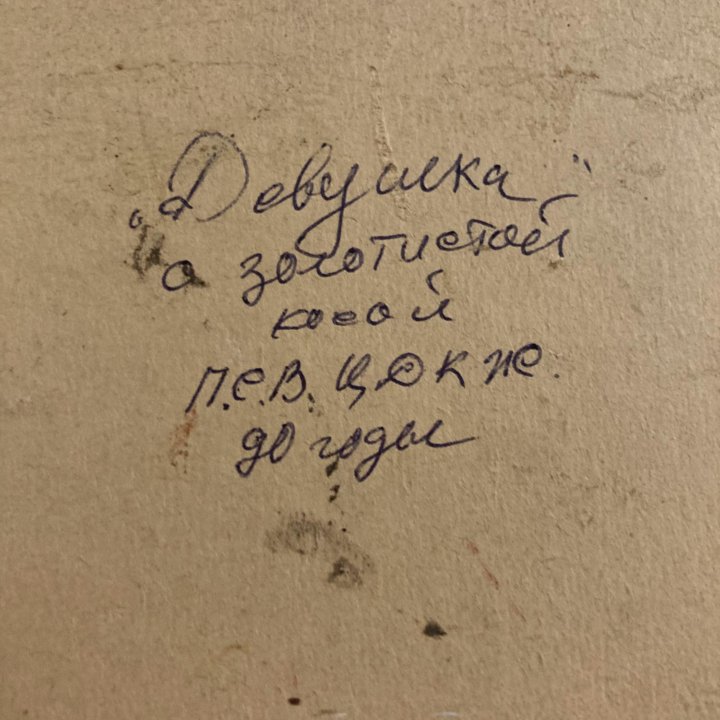 „Девушка"
с золотистой
косой
П.С.В. ЦДКЖ.
годы